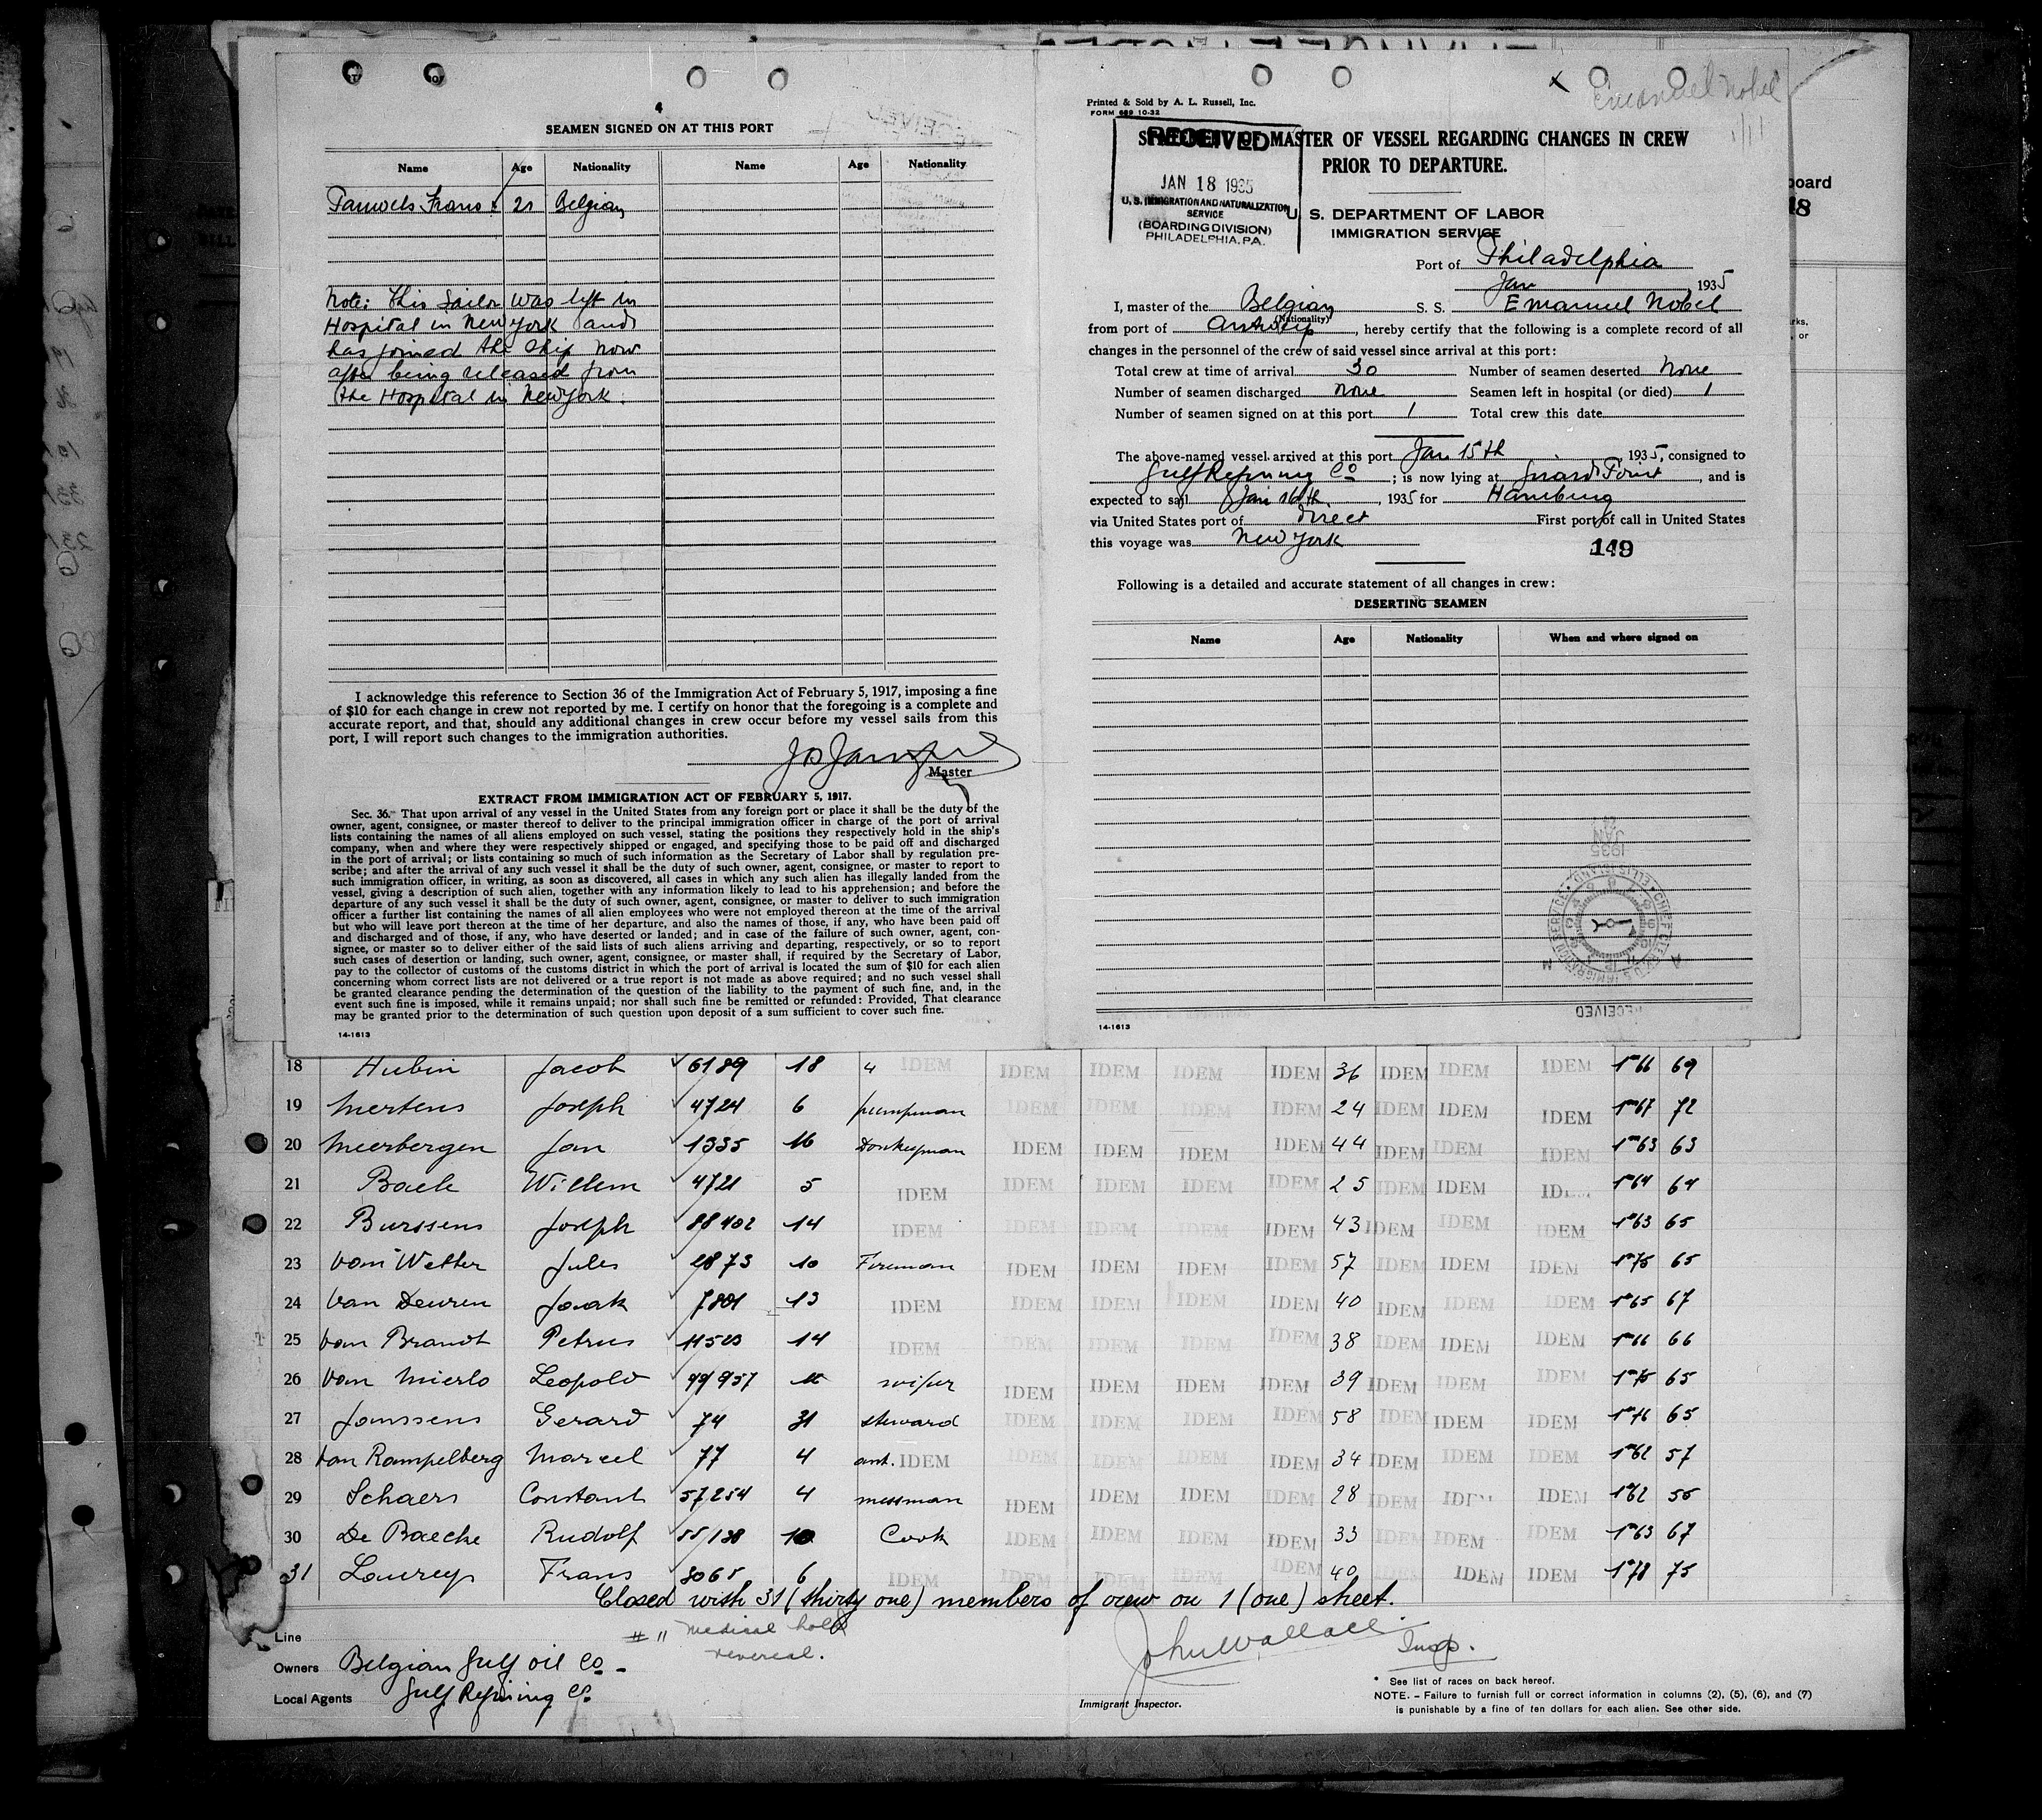 4
SEAMEN SIGNED ON AT THIS PORT
Name Age Nationality Name Age Nationality
Pauwels Frans 21 Belgian
Note: This Sailor was left in
Hospital in New York and
has joined the ship now
after being released from
the Hospital in New York.
I acknowledge this reference to Section 36 of the Immigration Act of February 5, 1917, imposing a fine
of $10 for each change in crew not reported by me. I certify on honor that the foregoing is a complete and
accurate report, and that, should any additional changes in crew occur before my vessel sails from this
port, I will report such changes to the immigration authorities.
Master
EXTRACT FROM IMMIGRATION ACT OF FEBRUARY 5, 1917.
Sec. 36. That upon arrival of any vessel in the United States from any foreign port or place it shall be the duty of the
owner, agent, consignee, or master thereof to deliver to the principal immigration officer in charge of the port of arrival
lists containing the names of all aliens employed on such vessel, stating the positions they respectively hold in the ship's
company, when and where they were respectively shipped or engaged, and specifying those to be paid off and discharged
in the port of arrival; or lists containing so much of such information as the Secretary of Labor shall by regulation pre-
scribe; and after the arrival of any such vessel it shall be the duty of such owner, agent, consignee, or master to report to
such immigration officer, in writing, as soon as discovered, all cases in which any such alien has illegally landed from the
vessel, giving a description of such alien, together with any information likely to lead to his apprehension; and before the
departure of any such vessel it shall be the duty of such owner, agent, consignee, or master to deliver to such immigration
officer a further list containing the names of all alien employees who were not employed thereon at the time of the arrival
but who will leave port thereon at the time of her departure, and also the names of those, if any, who have been paid off
and discharged and of those, if any, who have deserted or landed; and in case of the failure of such owner, agent, con-
signee, or master so to deliver either of the said lists of such aliens arriving and departing, respectively, or so to report
such cases of desertion or landing, such owner, agent, consignee, or master shall, if required by the Secretary of Labor,
pay to the collector of customs of the customs district in which the port of arrival is located the sum of $10 for each alien
concerning whom correct lists are not delivered or a true report is not made as above required; and no such vessel shall
be granted clearance pending the determination of the question of the liability to the payment of such fine, and, in the
event such fine is imposed, while it remains unpaid; nor shall such fine be remitted or refunded: Provided, That clearance
may be granted prior to the determination of such question upon deposit of a sum sufficient to cover such fine.
14-1613
Emanuel Nobel
Printed & Sold by A. L. Russell, Inc.
FORM 689 10-32
STATEMENT OF MASTER OF VESSEL REGARDING CHANGES IN CREW
PRIOR TO DEPARTURE.
RECEIVED
JAN 18 1935
U. S. IMMIGRATION AND NATURALIZATION
SERVICE
(BOARDING DIVISION)
PHILADELPHIA, PA.
U. S. DEPARTMENT OF LABOR
IMMIGRATION SERVICE
Port of Philadelphia
Jan 1935
I, master of the Belgian S. S. Emanuel Nobel
(Nationality)
from port of Antwerp, hereby certify that the following is a complete record of all
changes in the personnel of the crew of said vessel since arrival at this port:
Total crew at time of arrival 30 Number of seamen deserted None
Number of seamen discharged none Seamen left in hospital (or died) 1
Number of seamen signed on at this port 1 Total crew this date
The above-named vessel arrived at this port Jan 15th, 1935, consigned to
Gulf Refining Co; is now lying at Girard Point, and is
expected to sail Jan 16th, 1935 for Hamburg
via United States port of direct First port of call in United States
this voyage was New York
149
Following is a detailed and accurate statement of all changes in crew:
DESERTING SEAMEN
Name Age Nationality When and where signed on
14-1613
RECEIVED
board
18
18 Hubin Jacob 6189 18 " IDEM IDEM IDEM IDEM IDEM 36 IDEM IDEM IDEM 1m66 69
19 Mertens Joseph 4724 6 pumpman IDEM IDEM IDEM IDEM 24 IDEM IDEM IDEM 1m67 72
20 Meerbergen Jan 1335 16 Donkeyman IDEM IDEM IDEM IDEM 44 IDEM IDEM IDEM 1m63 63
21 Baele Willem 4721 5 IDEM IDEM IDEM IDEM IDEM 25 IDEM IDEM IDEM 1m64 64
22 Burssens Joseph 88402 14 IDEM IDEM IDEM IDEM IDEM 43 IDEM IDEM IDEM 1m63 65
23 Van Wetter Jules 2873 10 Fireman IDEM IDEM IDEM IDEM 57 IDEM IDEM IDEM 1m75 65
24 Van Deuren 7801 13 IDEM IDEM IDEM IDEM IDEM 40 IDEM IDEM IDEM 1m65 67
25 Van Brandt Petrus 14 IDEM IDEM IDEM IDEM IDEM 38 IDEM IDEM IDEM 1m66 66
26 Van Mierlo Leopold 99957 wiper IDEM IDEM IDEM IDEM 39 IDEM IDEM IDEM 1m75 65
27 Janssens Gerard 74 31 steward IDEM IDEM IDEM IDEM 58 IDEM IDEM IDEM 1m76 65
28 Van Rampelberg Marcel 77 4 ant. IDEM IDEM IDEM IDEM IDEM 34 IDEM IDEM IDEM 1m62 57
29 Schaers Constant 57254 4 messman IDEM IDEM IDEM IDEM 28 IDEM IDEM IDEM 1m62 56
30 De Baecke Rudolf 55138 10 Cook IDEM IDEM IDEM IDEM 33 IDEM IDEM IDEM 1m63 67
31 Laureys Frans 8065 6 IDEM IDEM IDEM IDEM IDEM 40 IDEM IDEM IDEM 1m78 75
Closed with 31 (thirty one) members of crew on 1 (one) sheet.
Line
# 11 medical hold
reversal.
John Wallace Insp.
Owners Belgian Gulf Oil Co.
Local Agents Gulf Refining Co.
Immigrant Inspector.
* See list of races on back hereof.
NOTE. – Failure to furnish full or correct information in columns (2), (5), (6), and (7)
is punishable by a fine of ten dollars for each alien. See other side.